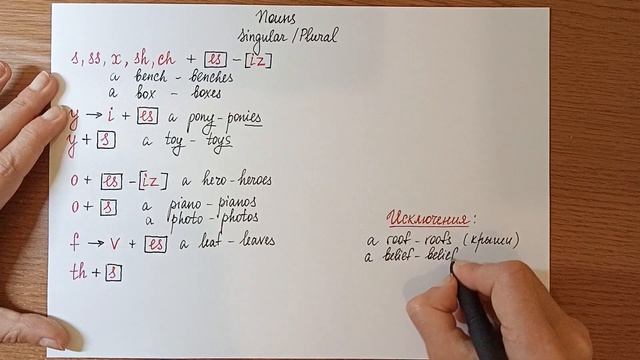 Nouns
Singular/Plural
s, ss, x, sh, ch + es - [iz]
a bench - benches
a box - boxes
y → i + es a pony - ponies
y + s a toy - toys
o + es - [iz] a hero - heroes
o + s a piano - pianos
a photo - photos
f → v + es a leaf - leaves
th + s
Исключения:
a roof - roofs (крыши)
a belief - belief